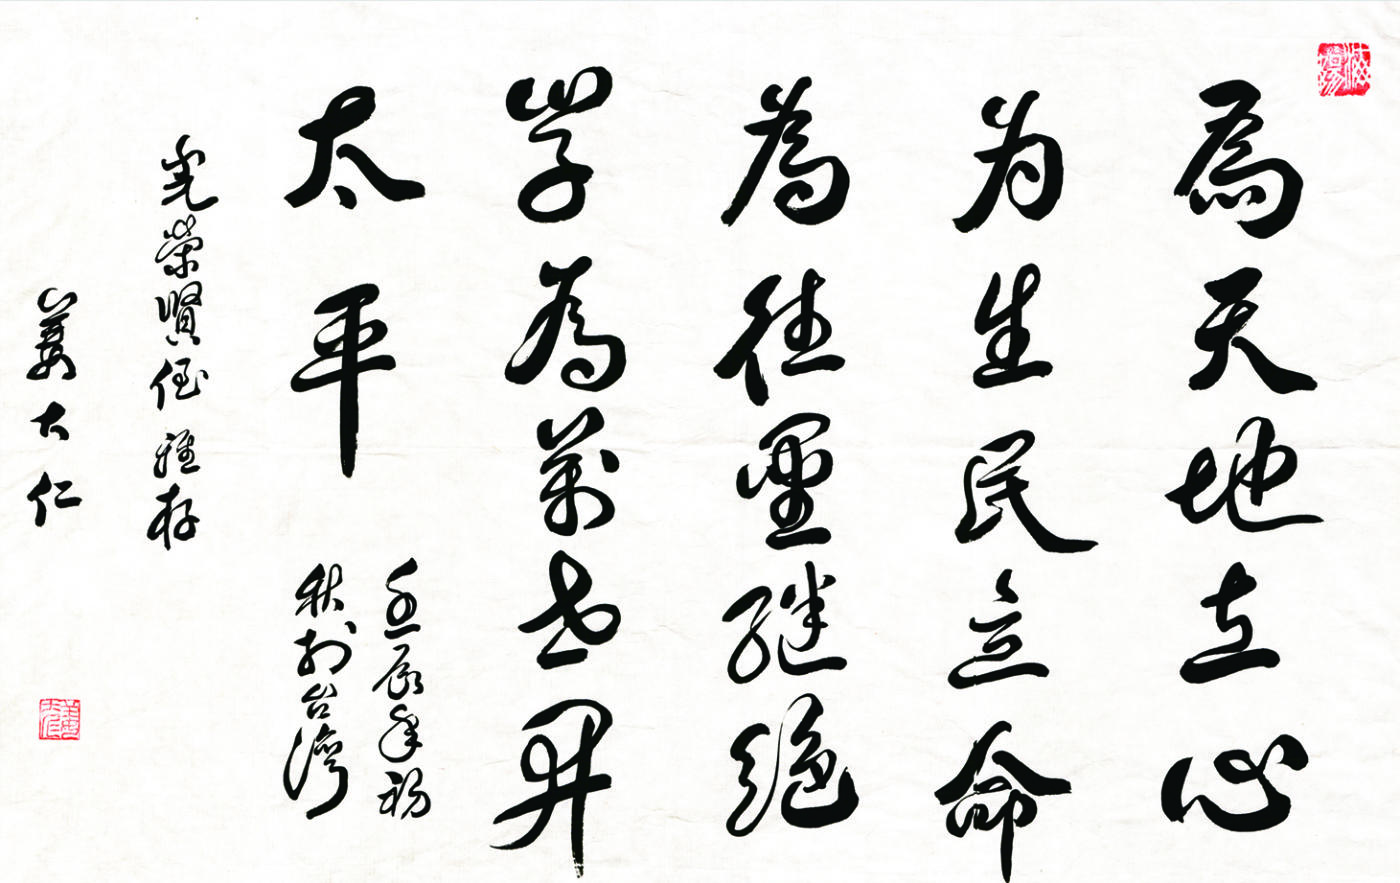 為天地立心
为生民立命
為往聖继絕
学為萬世開
太平
壬辰年初
秋於台灣
光榮賢侄雅存
姜大仁